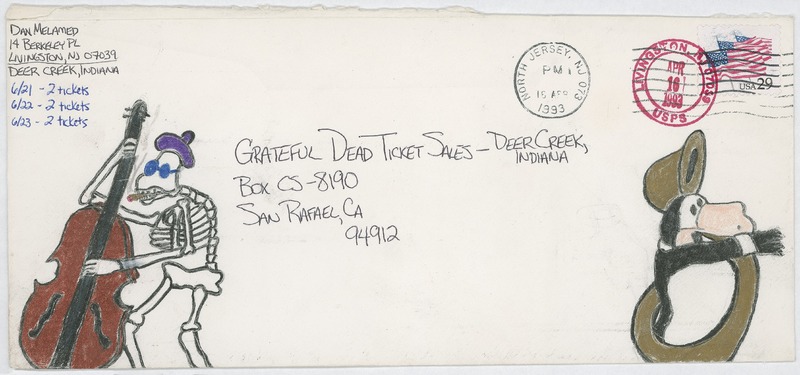 DAN MELAMED
14 BERKELEY PL
LIVINGSTON, NJ 07039
DEER CREEK, INDIANA
6/21 - 2 tickets
6/22 - 2 tickets
6/23 - 2 tickets
NORTH JERSEY, NJ 073
PM
16 APR
1993
LIVINGSTON, NJ 07039
APR
16
1993
USPS
USA 29
GRATEFUL DEAD TICKET SALES - DEER CREEK,
INDIANA
BOX CS-8190
SAN RAFAEL, CA
94912